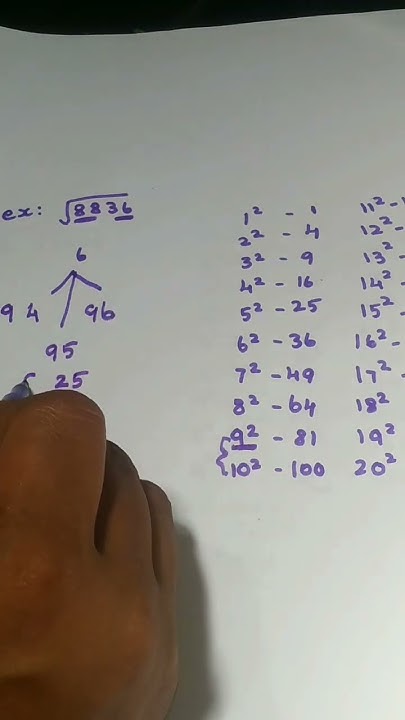 ex: √8836
6
94 96
95
25
1² - 1
2² - 4
3² - 9
4² - 16
5² - 25
6² - 36
7² - 49
8² - 64
9² - 81
10² - 100
11² -
12² -
13² -
14² -
15² -
16² -
17² -
18²
19²
20²